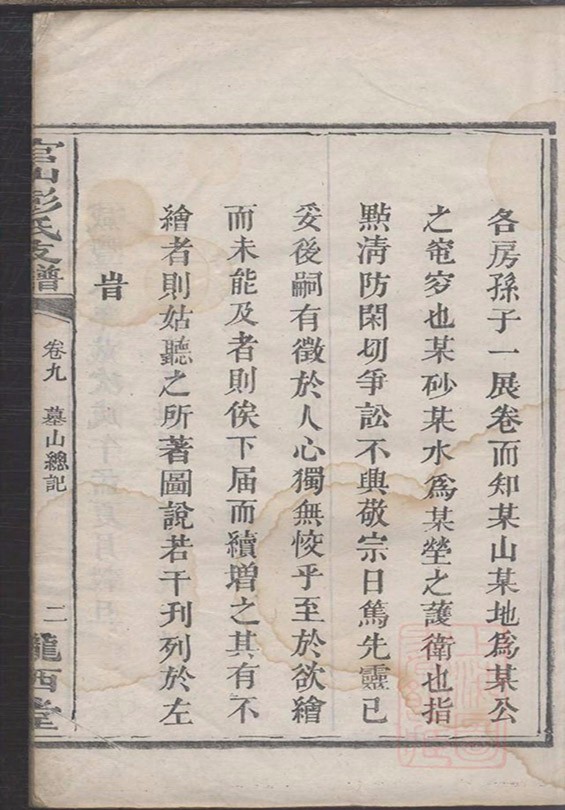 各房孫子一展卷而知某山某地爲某公
之窀穸也某砂某水爲某塋之護衛也指
點淸防閑切爭訟不興敬宗日篤先靈已
妥後嗣有徵於人心獨無恔乎至於欲繪
而未能及者則俟下届而續增之其有不
繪者則姑聽之所著圖說若干刋列於左
旹
官山彭氏支譜
卷九
墓山總記
二
隴西堂